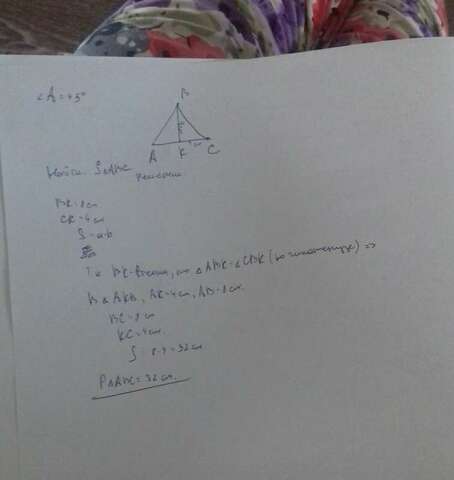 ∠A=45°
B
A K C
Найти: S△ABC
Решение
BK=8см
CK=4см
S=a·b
Т.к BK-высота, то △ABK=△CBK (по гипотенузе) =>
В △AKB, AK=4см, AB=8см.
BC=8см
KC=4см.
S=8·4=32см
P△ABC=32см.